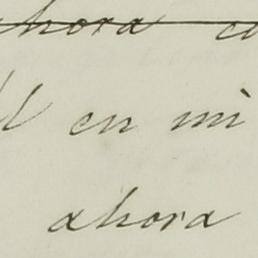 ahora
en mi
ahora